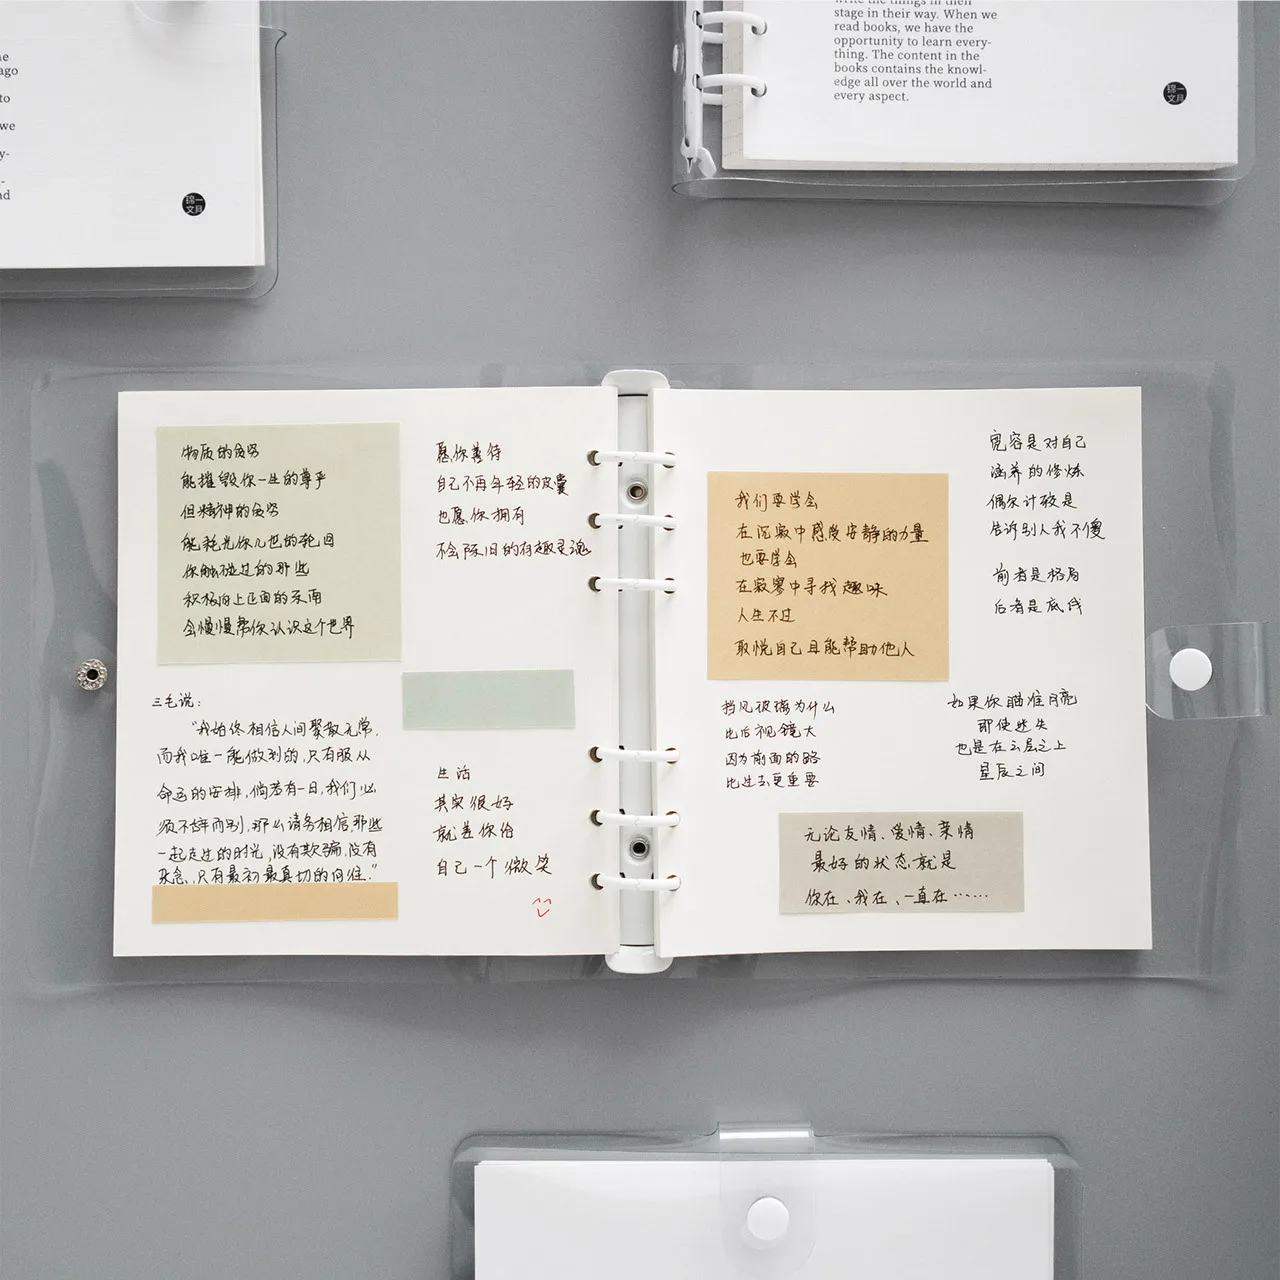 ago
to
we
y-
nd
锦一
文具
write the things in their
stage in their way. When we
read books, we have the
opportunity to learn every-
thing. The content in the
books contains the knowl-
edge all over the world and
every aspect.
锦一
文具
物质的贫穷
能摧毁你一生的尊严
但精神的贫穷
能耗光你几世的轮回
你触碰过的那些
积极向上正面的东西
会慢慢帮你认识这个世界
愿你善待
自己不再年轻的皮囊
也愿你拥有
不会陈旧的有趣灵魂
三毛说:
“我始终相信人间聚散无常,
而我唯一能做到的,只有服从
命运的安排,倘若有一日,我们必
须不辞而别,那么请务相信,那些
一起走过的时光,没有欺骗,没有
杂念,只有最初最真切的向往.”
生活
其实很好
就差你给
自己一个微笑
我们要学会
在沉寂中感受安静的力量
也要学会
在寂寞中寻找趣味
人生不过
取悦自己且能帮助他人
宽容是对自己
涵养的修炼
偶尔计较是
告诉别人我不傻
前者是格局
后者是底线
挡风玻璃为什么
比后视镜大
因为前面的路
比过去更重要
如果你瞄准月亮
即使迷失
也是在云层之上
星辰之间
无论友情、爱情、亲情
最好的状态就是
你在、我在、一直在……